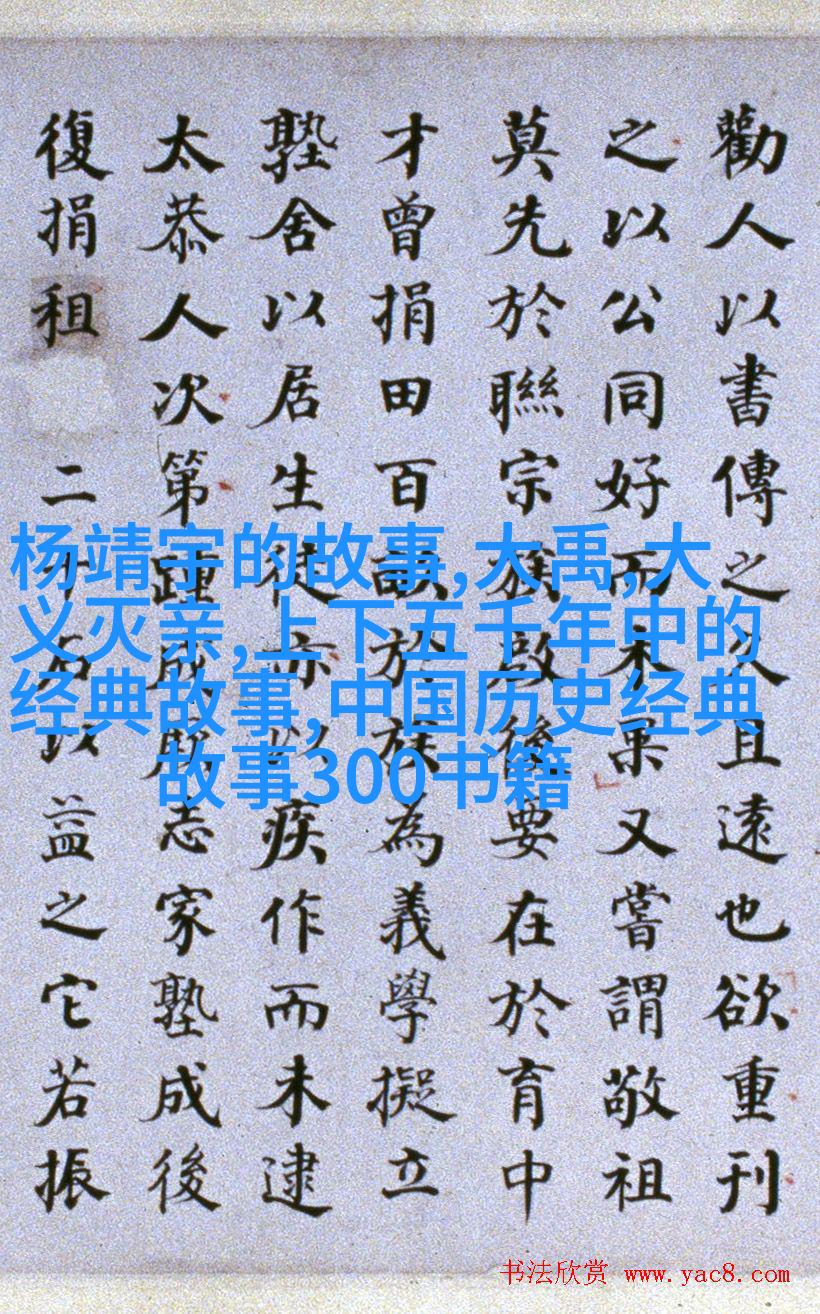 勸人以書傳之久且遠也欲重刊
之以公同好而未果又嘗謂敬祖
莫先於聯宗族啟後要在於育中
才曾捐田百畝於族為義學擬立
塾舍以居生徒亦以疾作而未逮
太恭人次第踵成志家塾成後
復捐租二十石以益之它若振
杨靖宇的故事,大禹,大
义灭亲,上下五千年中的
经典故事,中国历史经典
故事300书籍
书法欣赏 www.yac8.com